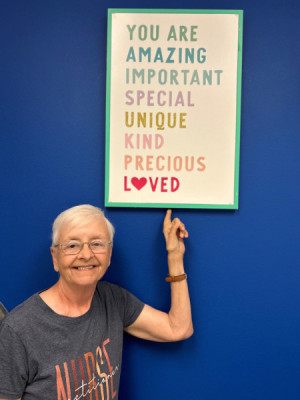 YOU ARE
AMAZING
IMPORTANT
SPECIAL
UNIQUE
KIND
PRECIOUS
L♥VED
NURSE